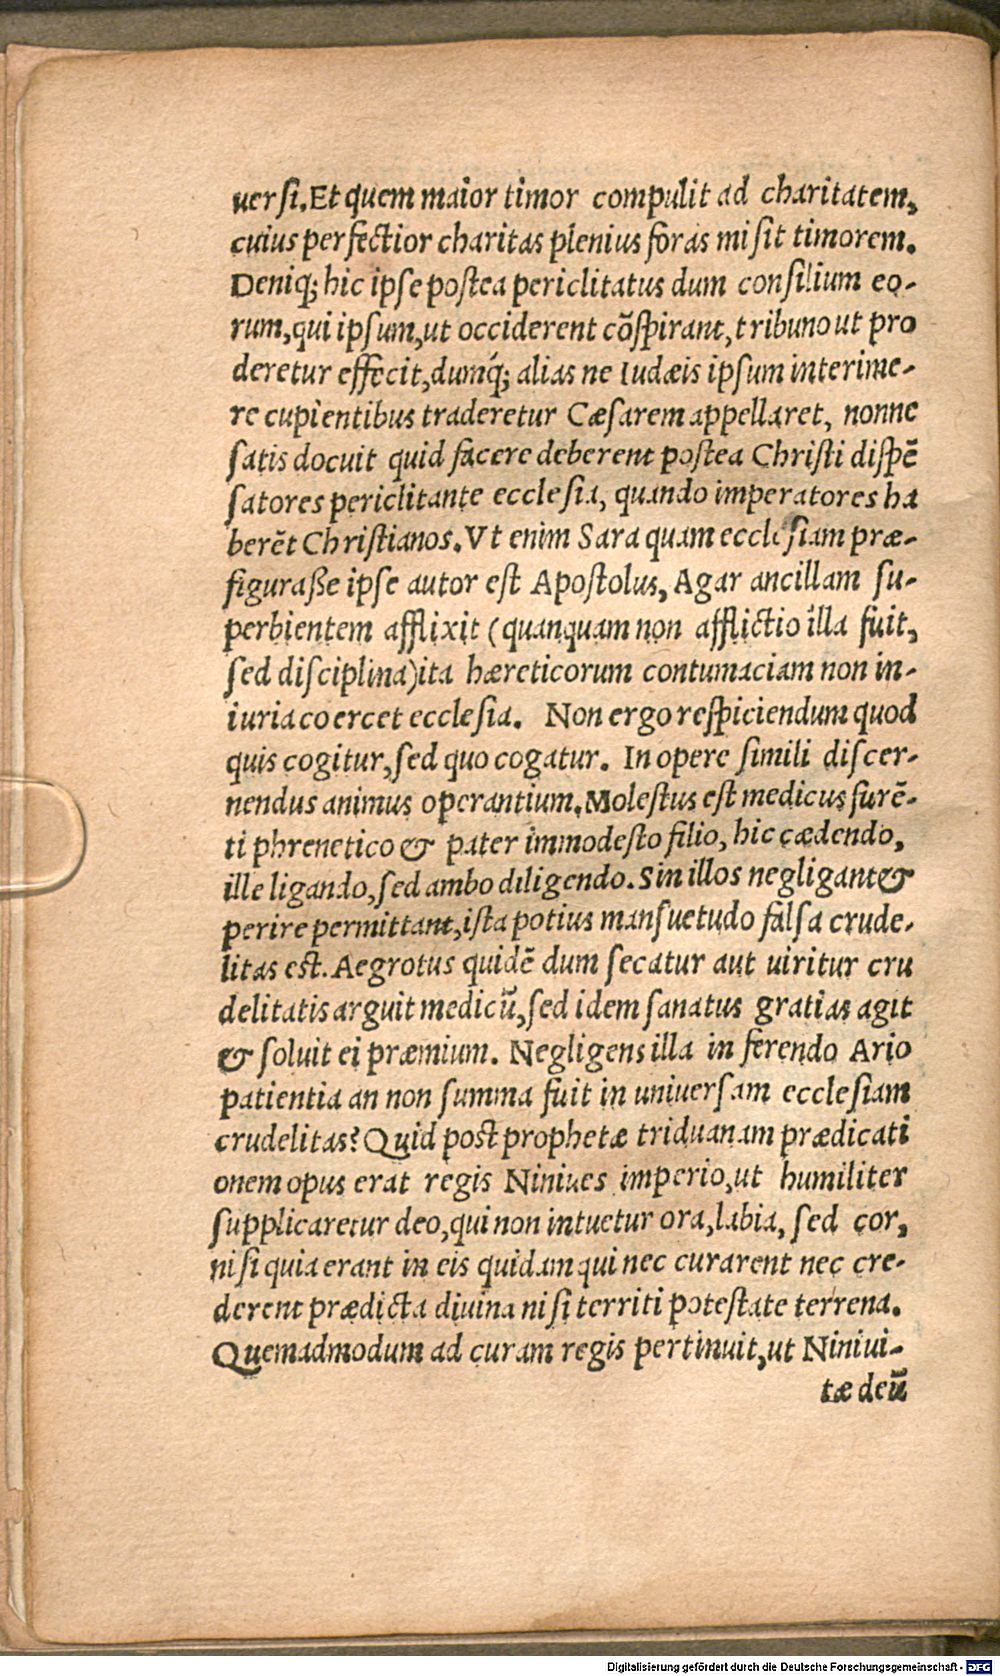 uersi. Et quem maior timor compulit ad charitatem,
cuius perfectior charitas plenius foras misit timorem.
Deniq; hic ipse postea periclitatus dum consilium eo-
rum, qui ipsum, ut occiderent cõspirant, tribuno ut pro
deretur effecit, dumq́; alias ne Iudæis ipsum interime-
re cupientibus traderetur Cæsarem appellaret, nonne
satis docuit quid facere deberent postea Christi dispẽ
satores periclitante ecclesia, quando imperatores ha
berẽt Christianos. Vt enim Sara quam ecclesiam præ-
figuraße ipse autor est Apostolus, Agar ancillam su-
perbientem afflixit (quanquam non afflictio illa fuit,
sed disciplina) ita hæreticorum contumaciam non in-
iuria coercet ecclesia. Non ergo respiciendum quod
quis cogitur, sed quo cogatur. In opere simili discer-
nendus animus operantium. Molestus est medicus furẽ-
ti phrenetico & pater immodesto filio, hic cædendo,
ille ligando, sed ambo diligendo. Sin illos negligant &
perire permittant, ista potius mansuetudo falsa crude-
litas est. Aegrotus quidẽ dum secatur aut uiritur cru
delitatis arguit medicũ, sed idem sanatus gratias agit
& soluit ei præmium. Negligens illa in ferendo Ario
patientia an non summa fuit in uniuersam ecclesiam
crudelitas? Quid post prophetæ triduanam prædicati
onem opus erat regis Niniues imperio, ut humiliter
supplicaretur deo, qui non intuetur ora, labia, sed cor,
nisi quia erant in eis quidam qui nec curarent nec cre-
derent prædicta diuina nisi territi potestate terrena.
Quemadmodum ad curam regis pertinuit, ut Niniui-
tæ deũ
Digitalisierung gefördert durch die Deutsche Forschungsgemeinschaft - DFG